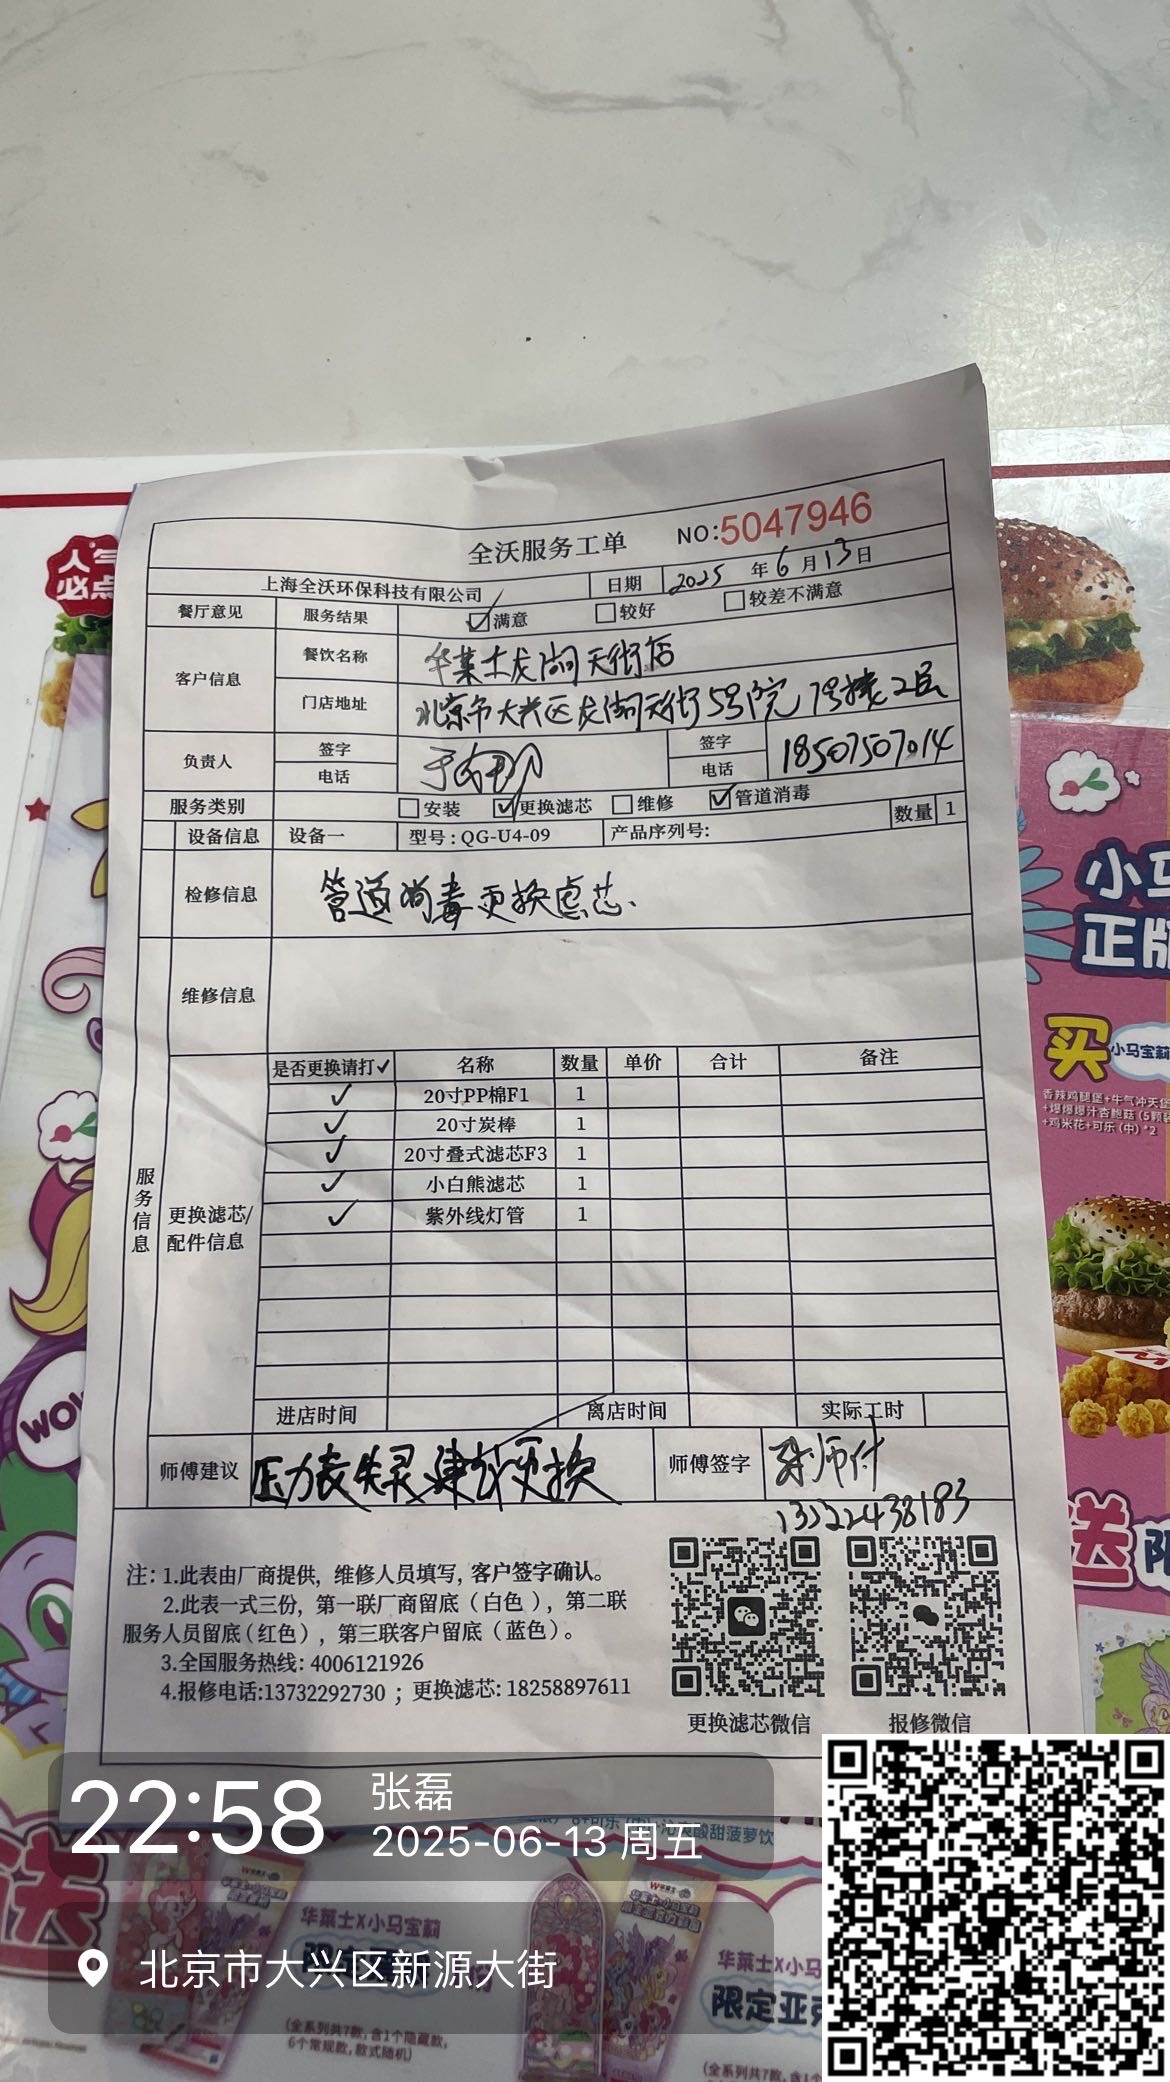 人气
必点
全沃服务工单 NO:5047946
上海全沃环保科技有限公司 日期 2025 年 6 月 13 日
餐厅意见 服务结果 ☑满意 □较好 □较差不满意
客户信息 餐饮名称 华莱士龙湖天街店
门店地址 北京市大兴区龙湖天街5号院 7号楼2层
负责人 签字 签字
电话 电话 18507507014
服务类别 □安装 ☑更换滤芯 □维修 ☑管道消毒
设备信息 设备一 型号:QG-U4-09 产品序列号: 数量 1
检修信息 管道消毒更换滤芯、
维修信息
服务信息
是否更换请打✓ 名称 数量 单价 合计 备注
✓ 20寸PP棉F1 1
✓ 20寸炭棒 1
✓ 20寸叠式滤芯F3 1
✓ 小白熊滤芯 1
✓ 紫外线灯管 1
更换滤芯/
配件信息
进店时间 离店时间 实际工时
师傅建议 压力表失灵建议更换 师傅签字
13522438183
注: 1.此表由厂商提供, 维修人员填写, 客户签字确认。
2.此表一式三份, 第一联厂商留底 ( 白色 ) , 第二联
服务人员留底 ( 红色 ) , 第三联客户留底 ( 蓝色 ) 。
3.全国服务热线: 4006121926
4.报修电话:13732292730 ; 更换滤芯: 18258897611
更换滤芯微信 报修微信
小马
正版
买
小马宝莉
香辣鸡腿堡+牛气冲天堡
+爆爆爆汁杏鲍菇 (5颗装
+鸡米花+可乐 (中) *2
送
WOW
22:58 张磊
2025-06-13 周五
北京市大兴区新源大街
酸甜菠萝饮
送
华莱士X小马宝莉
(全系列共7款, 含1个隐藏款,
6个常规款, 款式随机)
华莱士X小马
限定亚克
(全系列共7款, 含1个